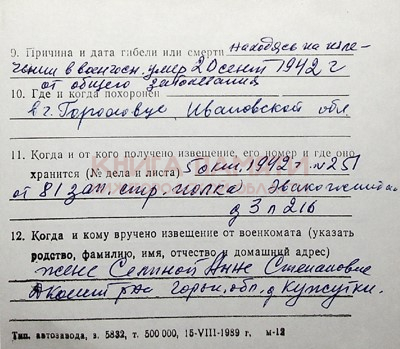 9. Причина и дата гибели или смерти находясь на изле-
чении в военгосп. умер 20 сент 1942 г
от общего заболевания
10. Где и когда похоронен
в г. Гороховце, Ивановской обл.
11. Когда и от кого получено извещение, его номер и где оно
хранится (№ дела и листа) 5 окт. 1942 г. №251
от 81 зап. стр. полка
д 3 л 216
12. Когда и кому вручено извещение от военкомата (указать
родство, фамилию, имя, отчество и домашний адрес)
жене Селиной Анне Степановне
горьк. обл. д
КНИГА ПАМЯТИ
Тип. автозавода, з. 5832, т. 500 000, 15-VIII-1989 г. м-12